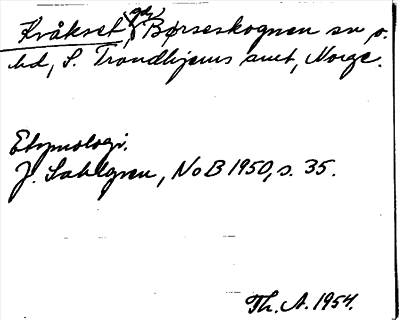 Kråkset, gd, Børseskognen sn o.
hd, S. Trondhjems amt, Norge.
Etymologi.
J. Sahlgren, NoB 1950, s. 35.
Th. A. 1954.